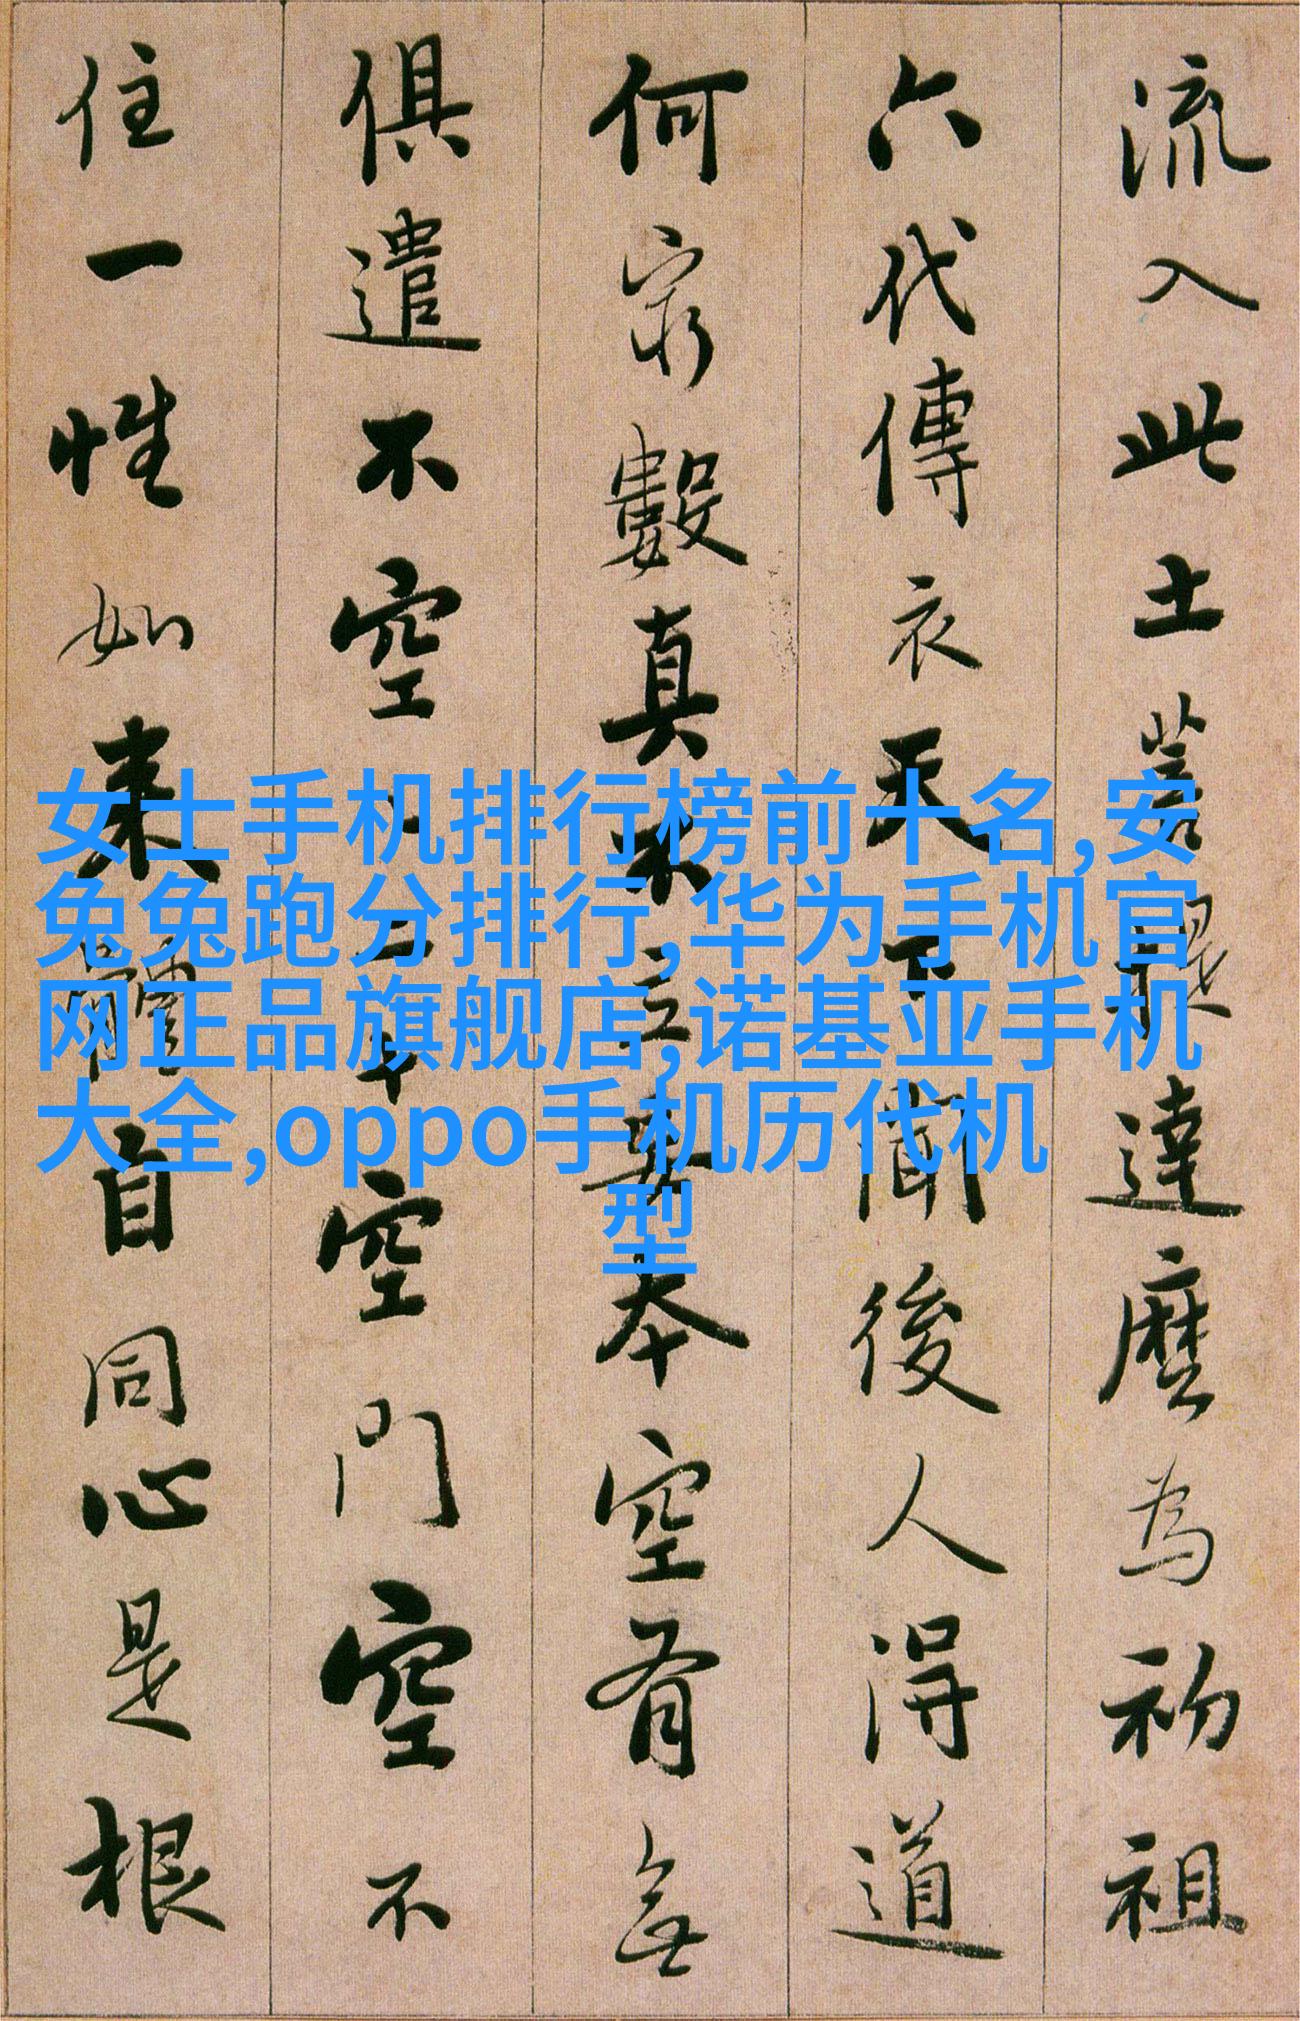 流入此土菩提達磨為初祖
六代傳衣天下聞後人得道
何窮數真不立妄本空有無
俱遣不空二十空門空不
住一性如來體自同心是根
女士手机排行榜前十名,安
兔兔跑分排行,华为手机官
网正品旗舰店,诺基亚手机
大全,oppo手机历代机
型